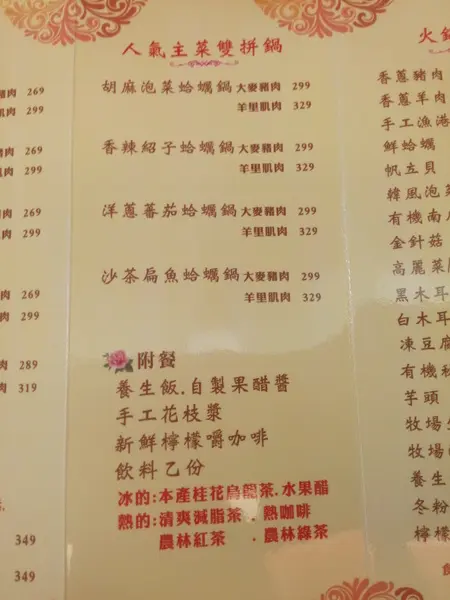 豬肉 269
肌肉 299
肉 269
肉 299
肉 269
肉 299
肉 269
肉 299
肉 289
肉 319
349
349
人氣主菜雙拼鍋
胡麻泡菜蛤蠣鍋大麥豬肉 299
羊里肌肉 329
香辣紹子蛤蠣鍋大麥豬肉 299
羊里肌肉 329
洋蔥蕃茄蛤蠣鍋大麥豬肉 299
羊里肌肉 329
沙茶扁魚蛤蠣鍋大麥豬肉 299
羊里肌肉 329
附餐
養生飯.自製果醋醬
手工花枝漿
新鮮檸檬嚼咖啡
飲料乙份
冰的:本產桂花烏龍茶.水果醋
熱的:清爽減脂茶.熱咖啡
農林紅茶 .農林綠茶
火鍋
香蔥豬肉
香蔥羊肉
手工漁港
鮮蛤蠣
帆立貝
韓風泡
有機南
金針菇
高麗菜
黑木耳
白木耳
凍豆腐
有機
芋頭
牧場
牧場
養生
冬粉
檸檬